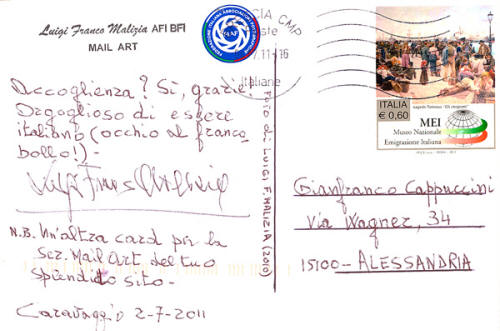 Luigi Franco Malizia AFI BFI
MAIL ART
Accoglienza? Sì, grazie.
Orgoglioso di essere
italiano (occhio al franco
bollo!)-
N.B. Un'altra card per la
Sez. Mail Art del tuo
splendido sito-
Caravaggio 2-7-2011
Foto di LUIGI F. MALIZIA (2010)
FEDERAZIONE ITALIANA ASSOCIAZIONI FOTOGRAFICHE
FIAF
CMP
.11-16
Italiane
ITALIA
€ 0,60
MEI
Museo Nazionale
Emigrazione Italiana
Gianfranco Cappuccini
Via Wagner, 34
15100-ALESSANDRIA